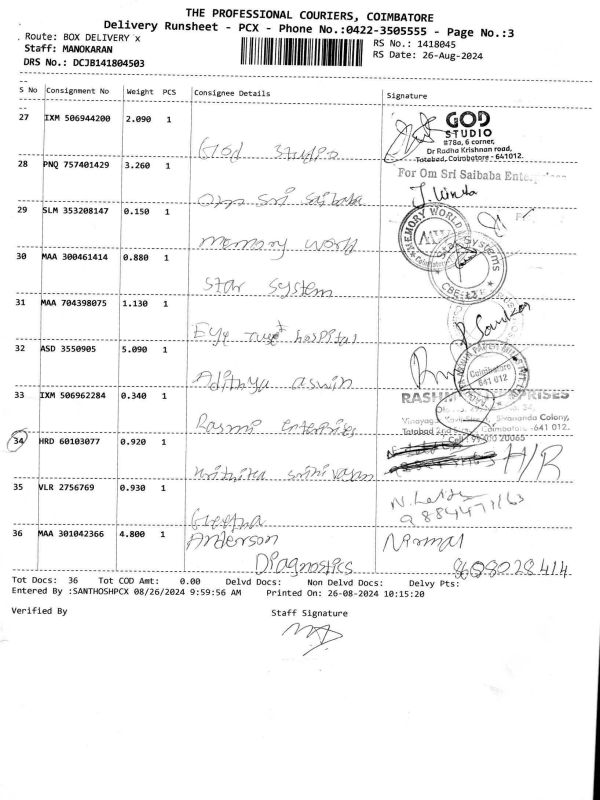 THE PROFESSIONAL COURIERS, COIMBATORE
Delivery Runsheet - PCX - Phone No.:0422-3505555 - Page No.:3
Route: BOX DELIVERY x
RS No.: 1418045
Staff: MANOKARAN
RS Date: 26-Aug-2024
DRS No.: DCJB141804503
S No Consignment No Weight PCS Consignee Details Signature
27 IXM 506944200 2.090 1
God Studio
GOD
STUDIO
#78a, 6 corner,
Dr Radha Krishnan road,
Tatabad, Coimbatore - 641012.
28 PNQ 757401429 3.260 1
Om Sri Saibaba
For Om Sri Saibaba Enterprises
29 SLM 353208147 0.150 1
memory world
MEMORY WORLD
MW
Coimbatore
30 MAA 300461414 0.880 1
Star System
Star Systems
31 MAA 704398075 1.130 1
Eye hospital
32 ASD 3550905 5.090 1
Adithya aswin
Coimbatore
641 012
33 IXM 506962284 0.340 1
Rasmi enterprises
Sivananda Colony,
Coimbatore -641 012.
34 HRD 60103077 0.920 1
H/R
35 VLR 2756769 0.930 1
Geetha
36 MAA 301042366 4.800 1
Anderson
Diagnostics
Nirmal
8608028414
Tot Docs: 36 Tot COD Amt: 0.00 Delvd Docs: Non Delvd Docs: Delvy Pts:
Entered By :SANTHOSHPCX 08/26/2024 9:59:56 AM Printed On: 26-08-2024 10:15:20
Verified By Staff Signature